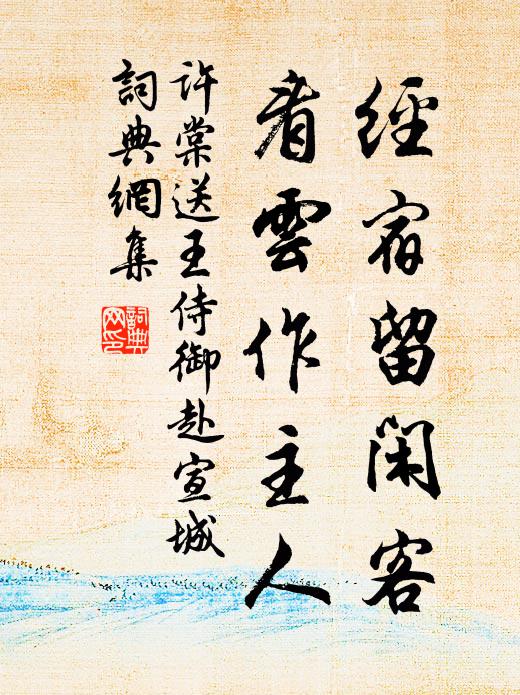 經宿留閑客
看雲作主人
許棠送王侍御赴宣城
詞典網集
詞典网印